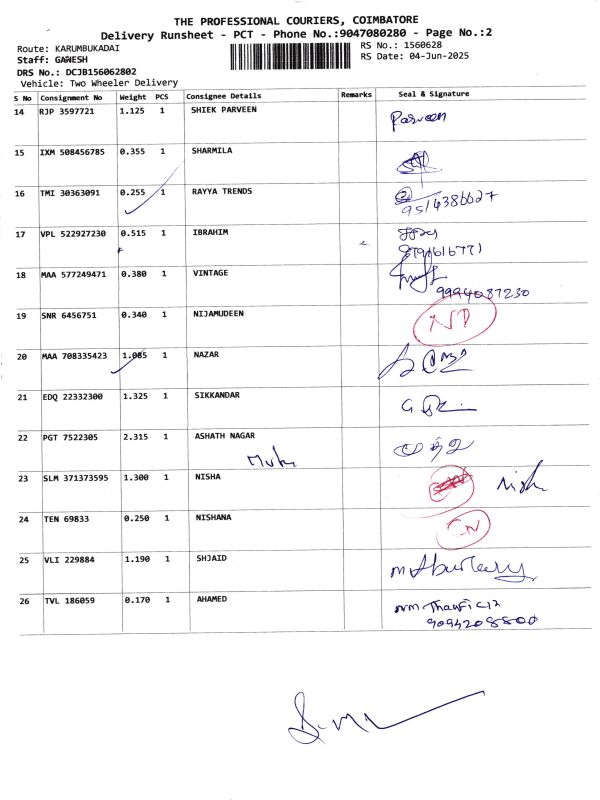 THE PROFESSIONAL COURIERS, COIMBATORE
Delivery Runsheet - PCT - Phone No.:9047080280 - Page No.:2
Route: KARUMBUKADAI
RS No.: 1560628
Staff: GANESH
RS Date: 04-Jun-2025
DRS No.: DCJB156062802
Vehicle: Two Wheeler Delivery
S No Consignment No Weight PCS Consignee Details Remarks Seal & Signature
14 RJP 3597721 1.125 1 SHIEK PARVEEN Parveen
15 IXM 508456785 0.355 1 SHARMILA
16 TMI 30363091 0.255 1 RAYYA TRENDS
9514386627
17 VPL 522927230 0.515 1 IBRAHIM
18 MAA 577249471 0.380 1 VINTAGE
9994087230
19 SNR 6456751 0.340 1 NIJAMUDEEN
20 MAA 708335423 1.085 1 NAZAR
21 EDQ 22332300 1.325 1 SIKKANDAR
22 PGT 7522305 2.315 1 ASHATH NAGAR
23 SLM 371373595 1.300 1 NISHA
24 TEN 69833 0.250 1 NISHANA
25 VLI 229884 1.190 1 SHJAID
26 TVL 186059 0.170 1 AHAMED
9094208800